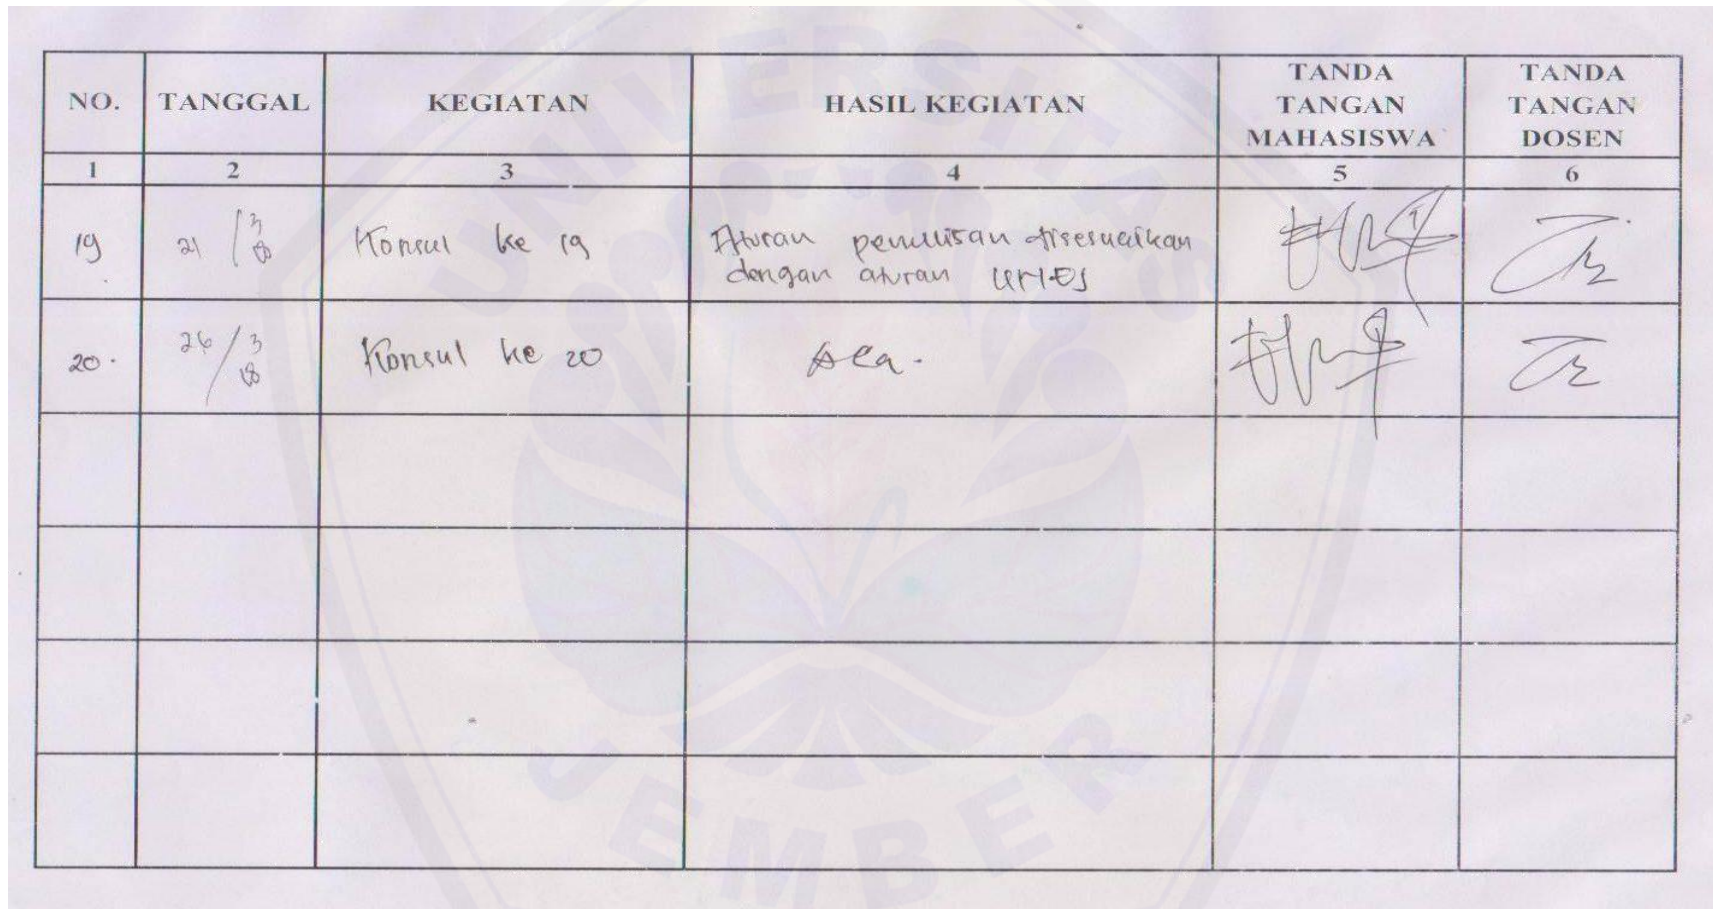 UNIVERSITAS
NO. TANGGAL KEGIATAN HASIL KEGIATAN TANDA TANGAN MAHASISWA TANDA TANGAN DOSEN
1 2 3 4 5 6
19 21/3 18 Konsul ke 19 Aturan penulisan disesuaikan
dengan aturan
20. 26/3 18 Konsul ke 20
JEMBER